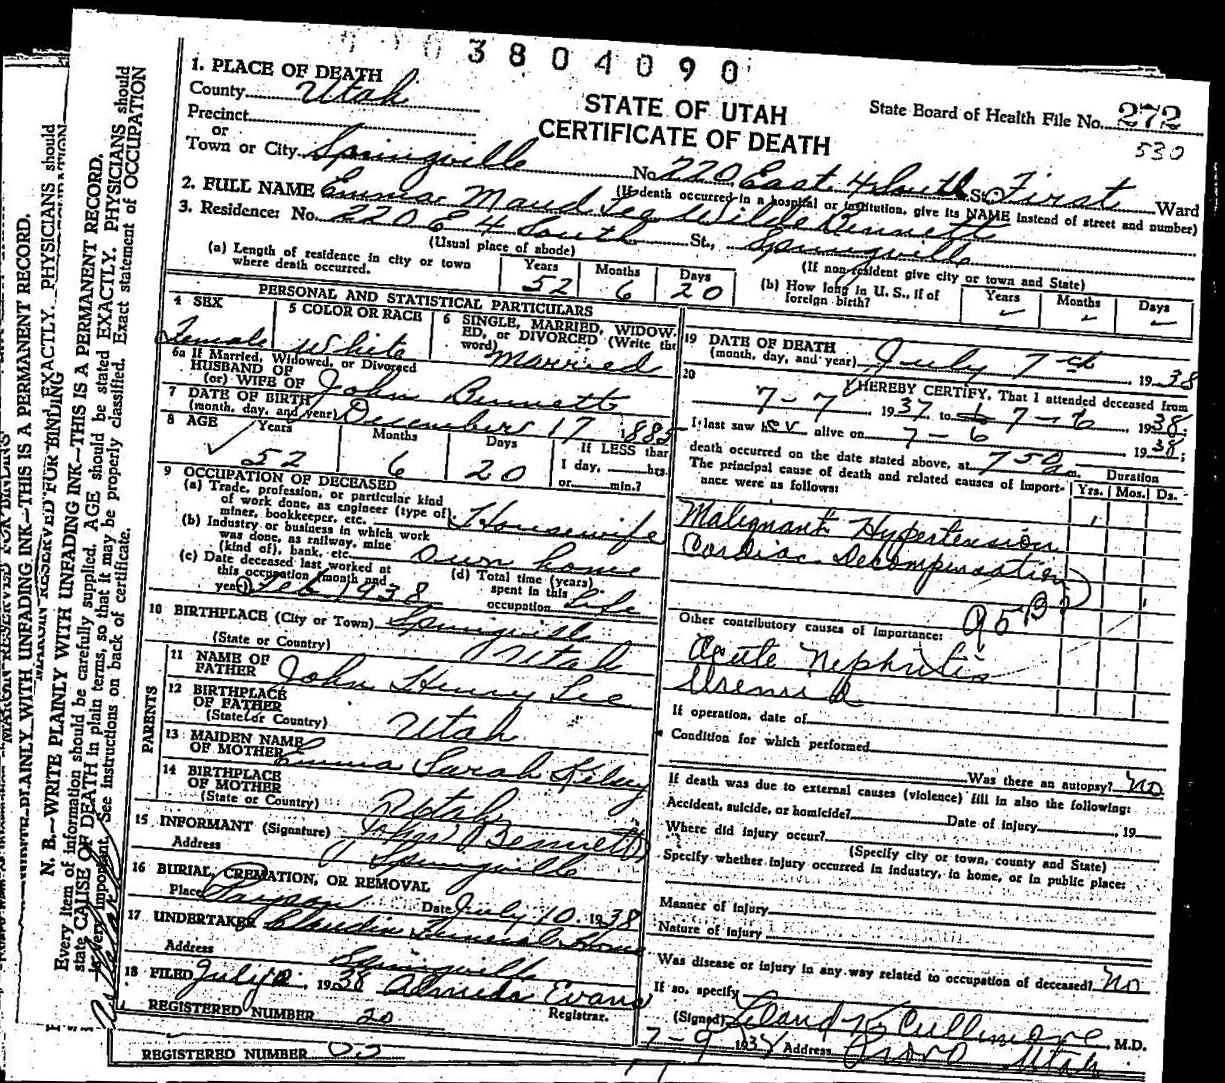 3804090
1. PLACE OF DEATH
County Utah
STATE OF UTAH
CERTIFICATE OF DEATH
State Board of Health File No. 272
530
Precinct
or
Town or City Springville No. 220 East 4 South St. First Ward
(If death occurred in a hospital or institution, give its NAME instead of street and number)
2. FULL NAME Emma Maud Lee Wilde Bennett
3. Residence: No. 220 E 4 South St., Springville
(Usual place of abode)
(If non-resident give city or town and State)
(a) Length of residence in city or town where death occurred.
Years 52 Months 6 Days 20
(b) How long in U. S., if of foreign birth?
Years Months Days
PERSONAL AND STATISTICAL PARTICULARS
4 SEX Female
5 COLOR OR RACE White
6 SINGLE, MARRIED, WIDOWED, or DIVORCED (Write the word) Married
6a If Married, Widowed, or Divorced
HUSBAND OF
(or) WIFE OF John Bennett
7 DATE OF BIRTH
(month, day, and year) December 17 1885
8 AGE Years 52 Months 6 Days 20
If LESS than
1 day, hrs.
or min.?
9 OCCUPATION OF DECEASED
(a) Trade, profession, or particular kind
of work done, as engineer (type of)
miner, bookkeeper, etc. Housewife
(b) Industry or business in which work
was done, as railway, mine
(kind of), bank, etc. Own home
(c) Date deceased last worked at
this occupation (month and
year) Feb 1938
(d) Total time (years)
spent in this
occupation Life
10 BIRTHPLACE (City or Town) Springville
(State or Country) Utah
PARENTS
11 NAME OF
FATHER John Henry Lee
12 BIRTHPLACE
OF FATHER
(State or Country) Utah
13 MAIDEN NAME
OF MOTHER Emma Sarah
14 BIRTHPLACE
OF MOTHER
(State or Country) Utah
15 INFORMANT (Signature) John Bennett
Address Springville
16 BURIAL, CREMATION, OR REMOVAL
Place Payson Date July 10, 1938
17 UNDERTAKER Claudin Funeral Home
Address Springville
18 FILED July 1938 Almeda Evans
Registrar.
REGISTERED NUMBER 20
REGISTERED NUMBER
19 DATE OF DEATH
(month, day, and year) July 7th 1938
20 I HEREBY CERTIFY, That I attended deceased from
7-7 1937 to 7-6 1938;
I last saw her alive on 7-6 1938;
death occurred on the date stated above, at 750 a m.
The principal cause of death and related causes of importance were as follows:
Duration
Yrs. Mos. Ds.
Malignant Hypertension 1
Cardiac Decompensation
95B
Other contributory causes of importance:
Acute Nephritis
Uremia
If operation, date of
Condition for which performed
Was there an autopsy? no
If death was due to external causes (violence) fill in also the following:
Accident, suicide, or homicide? Date of injury 19
Where did injury occur?
(Specify city or town, county and State)
Specify whether injury occurred in industry, in home, or in public place:
Manner of injury
Nature of injury
Was disease or injury in any way related to occupation of deceased? no
If so, specify
(Signed) Leland K Cullimore, M.D.
7-9 1938 Address Provo Utah
MARGIN RESERVED FOR BINDING
N. B.—WRITE PLAINLY WITH UNFADING INK—THIS IS A PERMANENT RECORD.
Every item of information should be carefully supplied. AGE should be stated EXACTLY. PHYSICIANS should
state CAUSE OF DEATH in plain terms, so that it may be properly classified. Exact statement of OCCUPATION
is very important. See instructions on back of certificate.